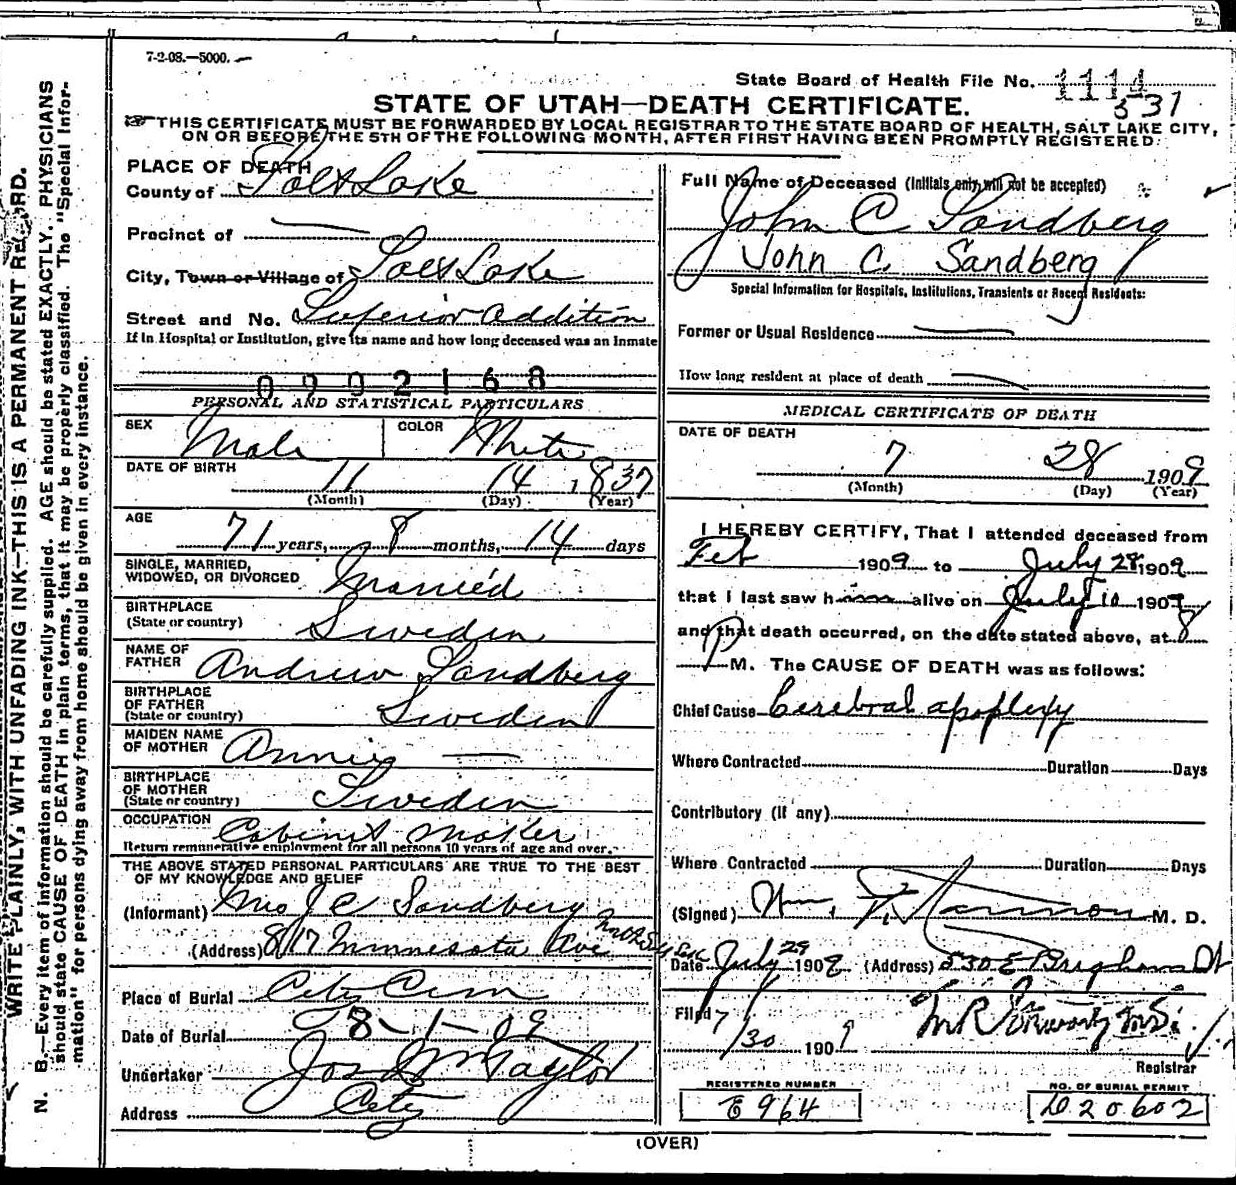 7-2-08.—5000.
State Board of Health File No. 1114
537
STATE OF UTAH—DEATH CERTIFICATE.
THIS CERTIFICATE MUST BE FORWARDED BY LOCAL REGISTRAR TO THE STATE BOARD OF HEALTH, SALT LAKE CITY,
ON OR BEFORE THE 5TH OF THE FOLLOWING MONTH, AFTER FIRST HAVING BEEN PROMPTLY REGISTERED.
PLACE OF DEATH
County of Salt Lake
Precinct of —
City, Town or Village of Salt Lake
Street and No. Superior Addition
If in Hospital or Institution, give its name and how long deceased was an Inmate
0902168
Full Name of Deceased (Initials only will not be accepted)
John C Sandberg
John C. Sandberg
Special Information for Hospitals, Institutions, Transients or Recent Residents:
Former or Usual Residence —
How long resident at place of death —
PERSONAL AND STATISTICAL PARTICULARS
SEX Male COLOR White
DATE OF BIRTH 11 14 1837
(Month) (Day) (Year)
AGE
71 years, 8 months, 14 days
SINGLE, MARRIED,
WIDOWED, OR DIVORCED Married
BIRTHPLACE
(State or country) Sweden
NAME OF
FATHER Andrew Sandberg
BIRTHPLACE
OF FATHER
(State or country) Sweden
MAIDEN NAME
OF MOTHER Annie —
BIRTHPLACE
OF MOTHER
(State or country) Sweden
OCCUPATION Cabinet Maker
Return remunerative employment for all persons 10 years of age and over.
THE ABOVE STATED PERSONAL PARTICULARS ARE TRUE TO THE BEST
OF MY KNOWLEDGE AND BELIEF
(Informant) Mrs J C Sandberg
(Address) 817 Minnesota Ave
Place of Burial City Cem
Date of Burial 8-1-09
Undertaker Jos Wm Taylor
Address City
MEDICAL CERTIFICATE OF DEATH
DATE OF DEATH
7 28 1909
(Month) (Day) (Year)
I HEREBY CERTIFY, That I attended deceased from
Feb 1909 to July 28 1909
that I last saw him alive on July 10 1909
and that death occurred, on the date stated above, at 8
P M. The CAUSE OF DEATH was as follows:
Chief Cause Cerebral apoplexy
Where Contracted Duration Days
Contributory (if any)
Where Contracted Duration Days
(Signed) Wm. M. D.
Date July 29 1909 (Address) 530 E Brigham St
Filed 7/30 1909
Registrar
REGISTERED NUMBER
E964
NO. OF BURIAL PERMIT
D20602
(OVER)
WRITE PLAINLY, WITH UNFADING INK—THIS IS A PERMANENT RECORD.
N. B.—Every item of information should be carefully supplied. AGE should be stated EXACTLY. PHYSICIANS
should state CAUSE OF DEATH in plain terms, that it may be properly classified. The "Special Infor-
mation" for persons dying away from home should be given in every instance.